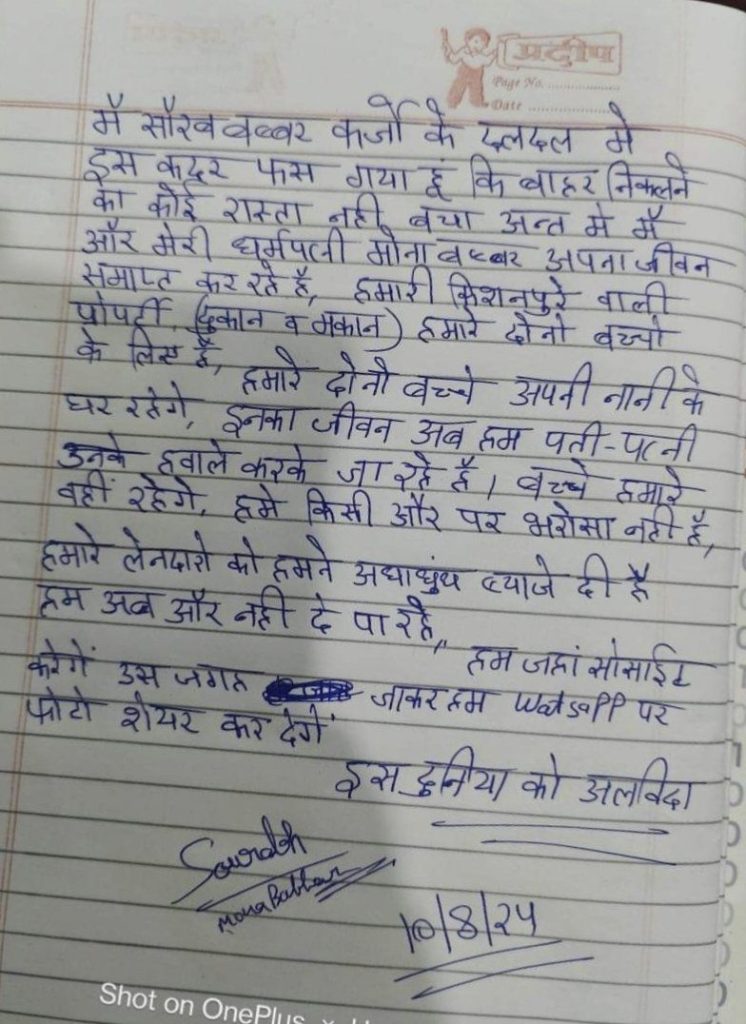 प्रदीप
Page No.
Date
मैं सौरब बब्बर कर्जो के दलदल मे
इस कदर फस गया हूं कि बाहर निकलने
का कोई रास्ता नही बचा अन्त मे मैं
और मेरी धर्मपत्नी मोना बब्बर अपना जीवन
समाप्त कर रहे है, हमारी किशनपुरे वाली
प्रोपर्टी, (दुकान व मकान) हमारे दोनो बच्चो
के लिए है, हमारे दोनो बच्चे अपनी नानी के
घर रहेगे, इनका जीवन अब हम पती-पत्नी
उनके हवाले करके जा रहे है। बच्चे हमारे
वहीं रहेगे, हमे किसी और पर भरोसा नही है,
हमारे लेनदारो को हमने अंधाधुंध ब्याजे दी है
हम अब और नही दे पा रहे,, हम जहां सोसाईट
करेगें उस जगह जाकर हम Watsapp पर
फोटो शेयर कर देगें
इस दुनिया को अलविदा
Sourabh
Mona Babbar
10/8/24
Shot on OnePlus